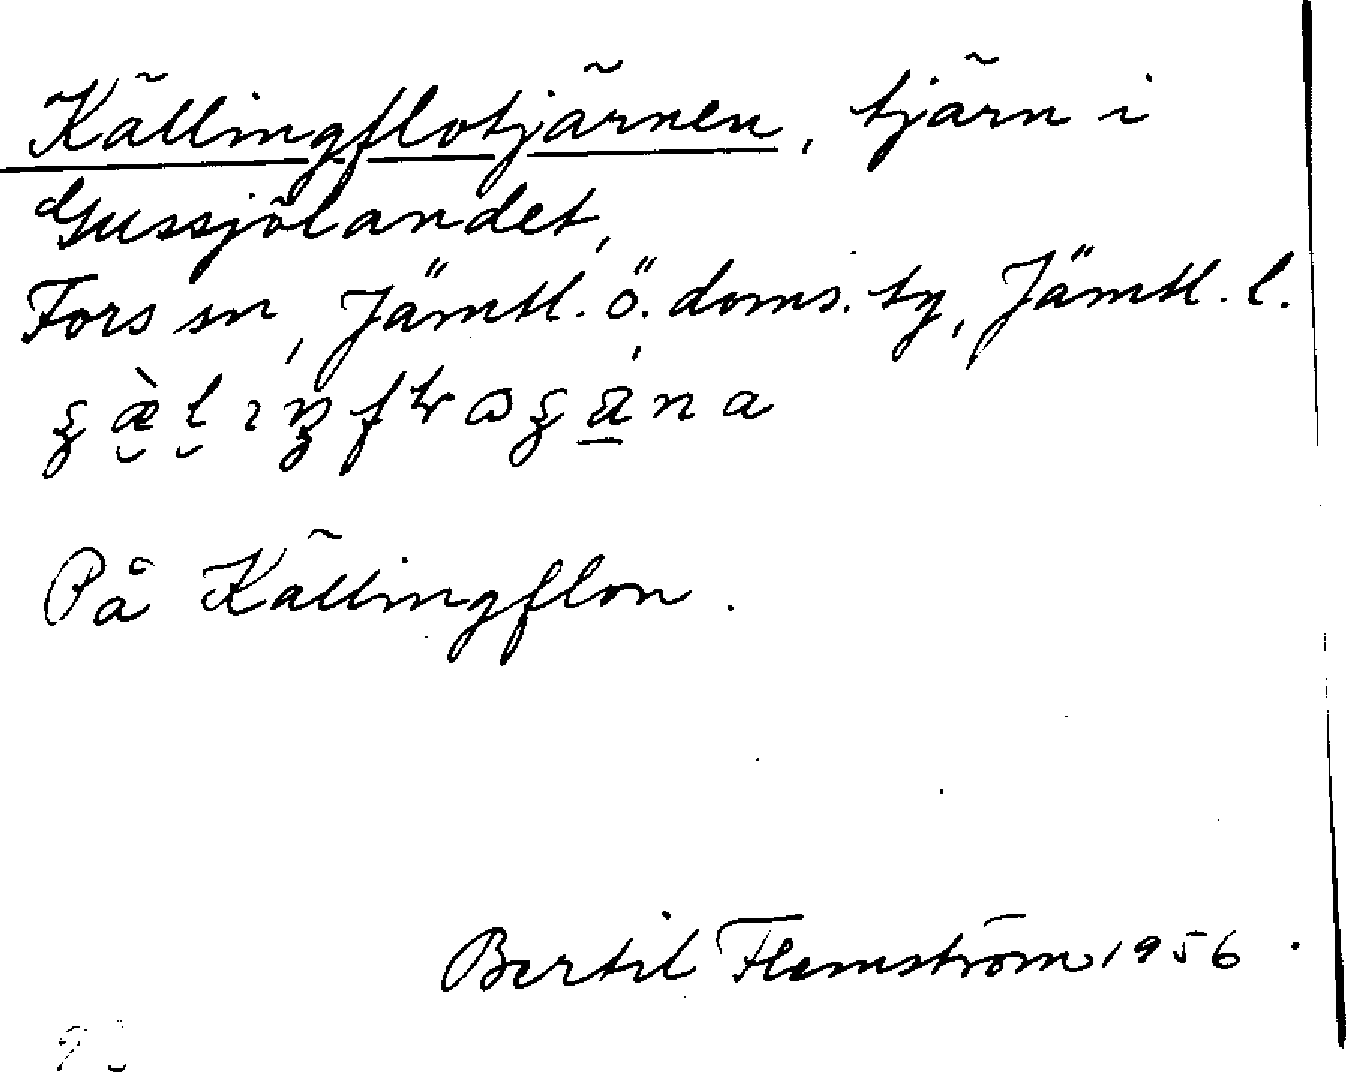 Källingflotjärnen, tjärn i
Gussjölandet,
Fors sn, Jämtl. ö. doms. tg, Jämtl. l.
På Källingflon.
Bertil Flemström 1956.